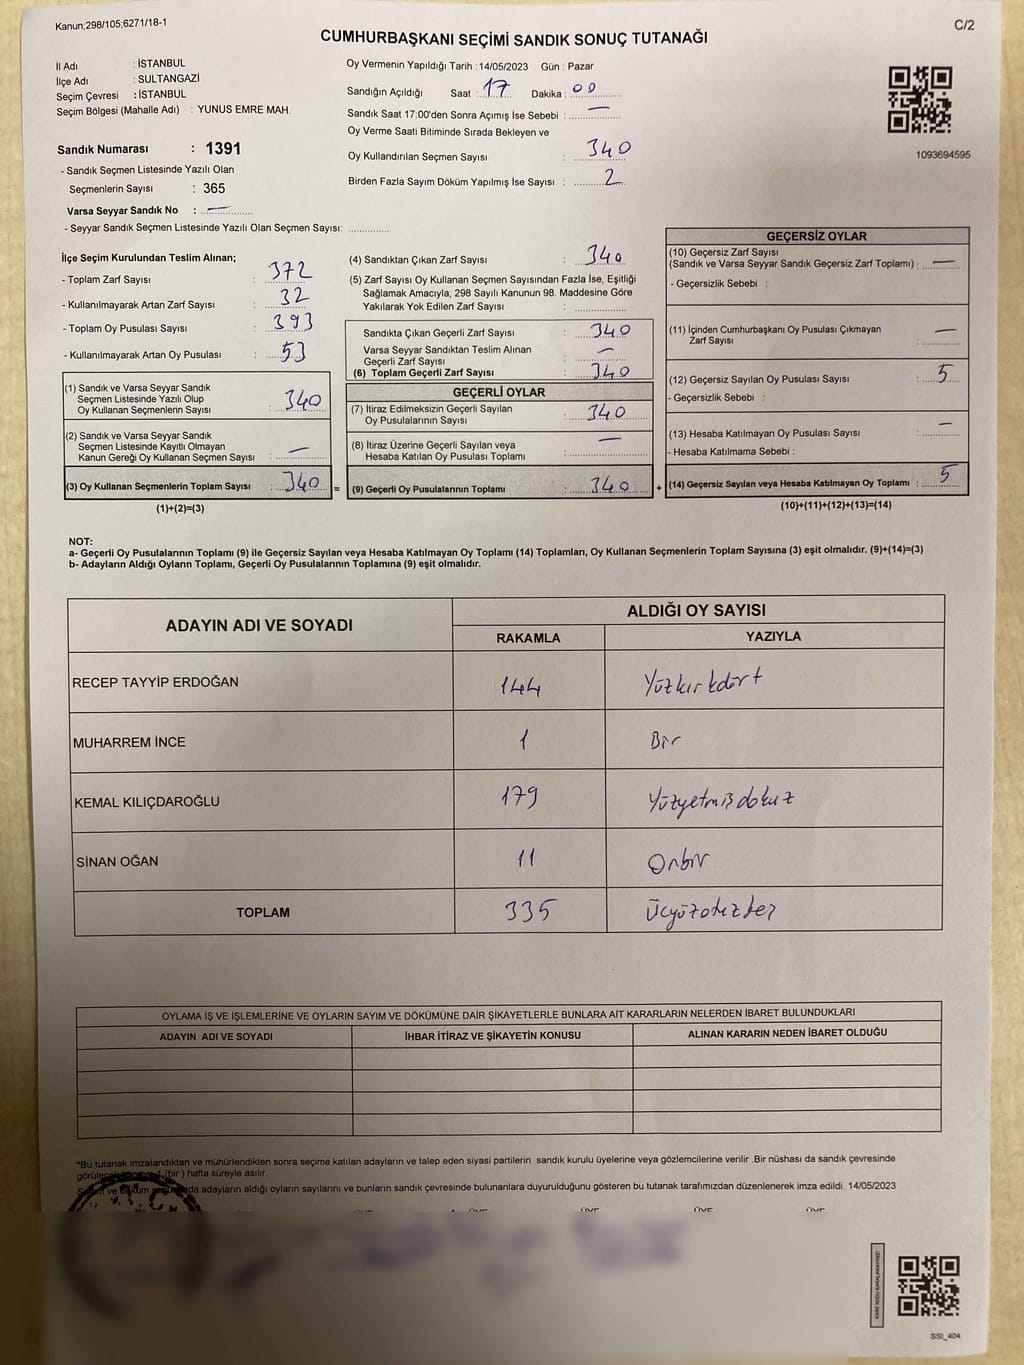 Kanun;298/105;6271/18-1
C/2
CUMHURBAŞKANI SEÇİMİ SANDIK SONUÇ TUTANAĞI
İl Adı : İSTANBUL
İlçe Adı : SULTANGAZİ
Seçim Çevresi : İSTANBUL
Seçim Bölgesi (Mahalle Adı) : YUNUS EMRE MAH.
Sandık Numarası : 1391
- Sandık Seçmen Listesinde Yazılı Olan
Seçmenlerin Sayısı : 365
Varsa Seyyar Sandık No : —
- Seyyar Sandık Seçmen Listesinde Yazılı Olan Seçmen Sayısı:
Oy Vermenin Yapıldığı Tarih : 14/05/2023 Gün : Pazar
Sandığın Açıldığı Saat : 17 Dakika : 00
Sandık Saat 17:00'den Sonra Açımış İse Sebebi : —
Oy Verme Saati Bitiminde Sırada Bekleyen ve
Oy Kullandırılan Seçmen Sayısı : 340
Birden Fazla Sayım Döküm Yapılmış İse Sayısı : 2
1093694595
İlçe Seçim Kurulundan Teslim Alınan;
- Toplam Zarf Sayısı : 372
- Kullanılmayarak Artan Zarf Sayısı : 32
- Toplam Oy Pusulası Sayısı : 393
- Kullanılmayarak Artan Oy Pusulası : 53
(1) Sandık ve Varsa Seyyar Sandık
Seçmen Listesinde Yazılı Olup
Oy Kullanan Seçmenlerin Sayısı : 340
(2) Sandık ve Varsa Seyyar Sandık
Seçmen Listesinde Kayıtlı Olmayan
Kanun Gereği Oy Kullanan Seçmen Sayısı : —
(3) Oy Kullanan Seçmenlerin Toplam Sayısı : 340 =
(1)+(2)=(3)
(4) Sandıktan Çıkan Zarf Sayısı : 340
(5) Zarf Sayısı Oy Kullanan Seçmen Sayısından Fazla İse, Eşitliği
Sağlamak Amacıyla, 298 Sayılı Kanunun 98. Maddesine Göre
Yakılarak Yok Edilen Zarf Sayısı :
Sandıkta Çıkan Geçerli Zarf Sayısı : 340
Varsa Seyyar Sandıktan Teslim Alınan
Geçerli Zarf Sayısı : —
(6) Toplam Geçerli Zarf Sayısı : 340
GEÇERLİ OYLAR
(7) İtiraz Edilmeksizin Geçerli Sayılan
Oy Pusulalarının Sayısı : 340
(8) İtiraz Üzerine Geçerli Sayılan veya
Hesaba Katılan Oy Pusulası Toplamı : —
(9) Geçerli Oy Pusulalarının Toplamı : 340 +
GEÇERSİZ OYLAR
(10) Geçersiz Zarf Sayısı
(Sandık ve Varsa Seyyar Sandık Geçersiz Zarf Toplamı) : —
- Geçersizlik Sebebi :
(11) İçinden Cumhurbaşkanı Oy Pusulası Çıkmayan
Zarf Sayısı : —
(12) Geçersiz Sayılan Oy Pusulası Sayısı : 5
- Geçersizlik Sebebi :
(13) Hesaba Katılmayan Oy Pusulası Sayısı : —
- Hesaba Katılmama Sebebi :
(14) Geçersiz Sayılan veya Hesaba Katılmayan Oy Toplamı : 5
(10)+(11)+(12)+(13)=(14)
NOT:
a- Geçerli Oy Pusulalarının Toplamı (9) ile Geçersiz Sayılan veya Hesaba Katılmayan Oy Toplamı (14) Toplamları, Oy Kullanan Seçmenlerin Toplam Sayısına (3) eşit olmalıdır. (9)+(14)=(3)
b- Adayların Aldığı Oyların Toplamı, Geçerli Oy Pusulalarının Toplamına (9) eşit olmalıdır.
ADAYIN ADI VE SOYADI
ALDIĞI OY SAYISI
RAKAMLA YAZIYLA
RECEP TAYYİP ERDOĞAN 144 Yüzkırkdört
MUHARREM İNCE 1 Bir
KEMAL KILIÇDAROĞLU 179 Yüzyetmişdokuz
SİNAN OĞAN 11 Onbir
TOPLAM 335 Üçyüzotuzbeş
OYLAMA İŞ VE İŞLEMLERİNE VE OYLARIN SAYIM VE DÖKÜMÜNE DAİR ŞİKAYETLERLE BUNLARA AİT KARARLARIN NELERDEN İBARET BULUNDUKLARI
ADAYIN ADI VE SOYADI İHBAR İTİRAZ VE ŞİKAYETİN KONUSU ALINAN KARARIN NEDEN İBARET OLDUĞU
*Bu tutanak imzalandıktan ve mühürlendikten sonra seçime katılan adayların ve talep eden siyasi partilerin sandık kurulu üyelerine veya gözlemcilerine verilir .Bir nüshası da sandık çevresinde
1 (bir ) hafta süreyle asılır.
adayların aldığı oyların sayılarını ve bunların sandık çevresinde bulunanlara duyurulduğunu gösteren bu tutanak tarafımızdan düzenlenerek imza edildi. 14/05/2023
ÜYE ÜYE ÜYE ÜYE ÜYE
KARE KODU KARALAMAYINIZ!
SSI_404